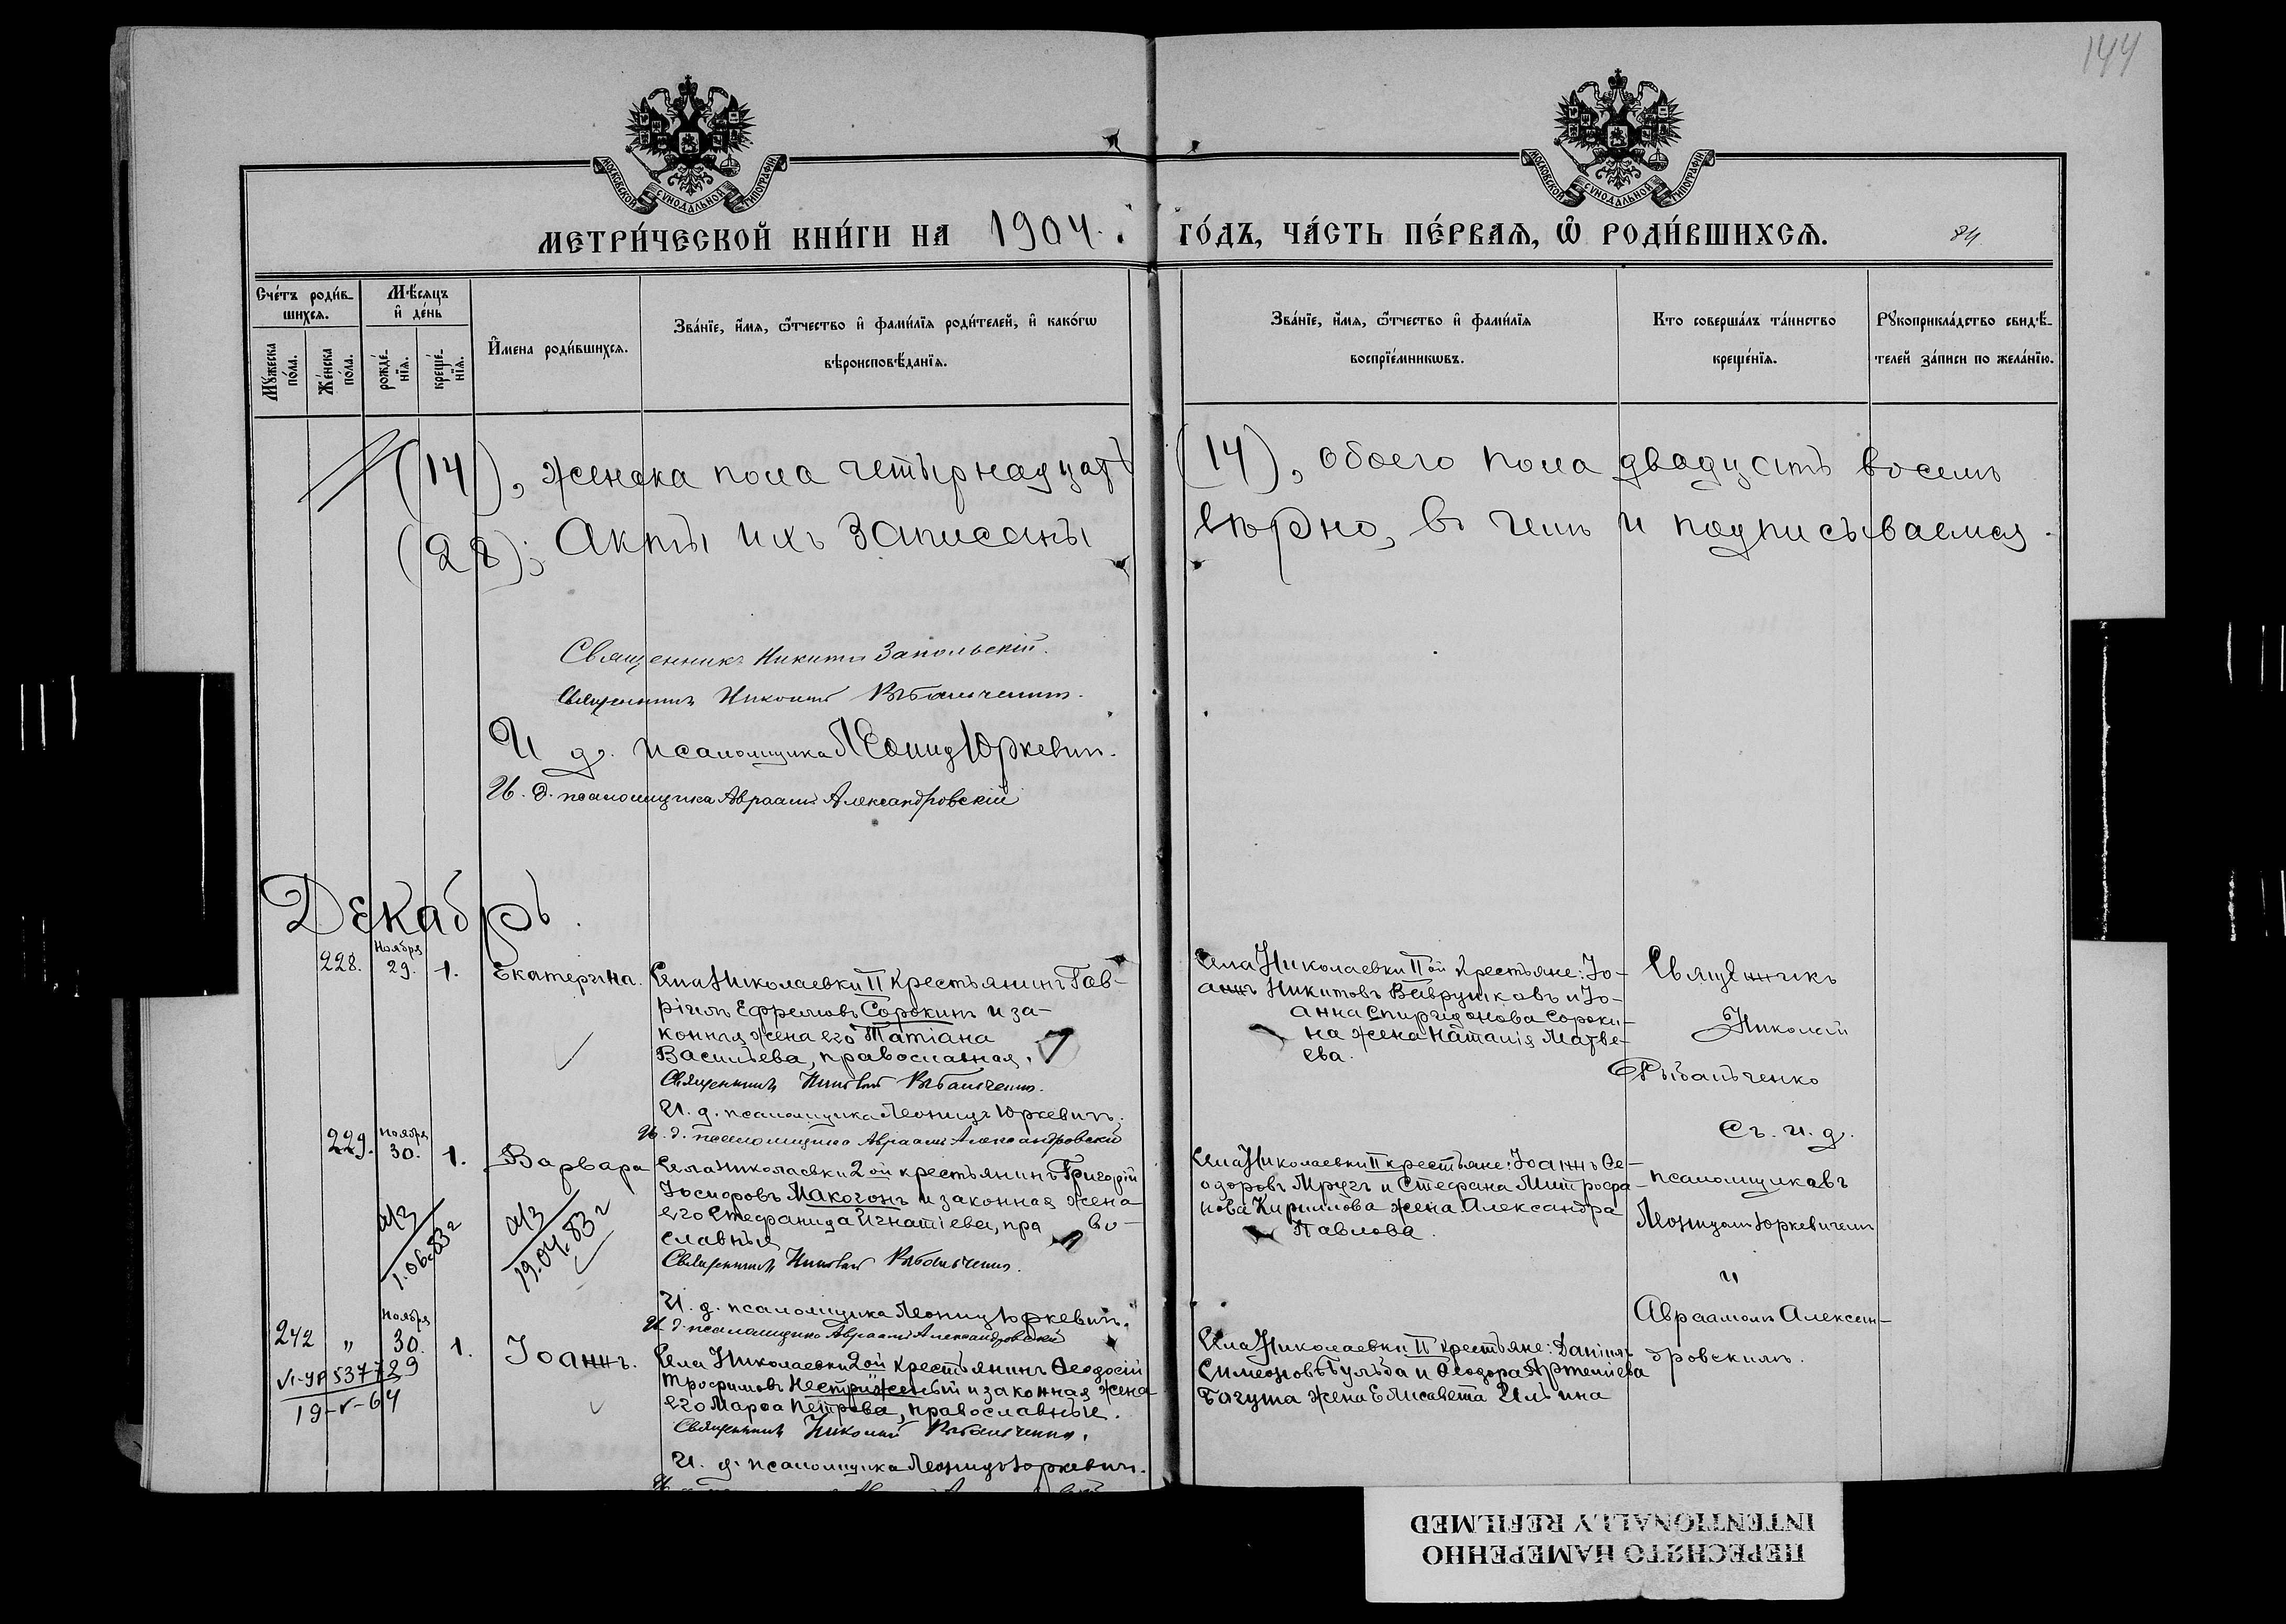 144
МОСКОВСКОЙ СУНОДАЛЬНОЙ ТИПОГРАФІИ
МОСКОВСКОЙ СУНОДАЛЬНОЙ ТИПОГРАФІИ
МЕТРИ́ЧЕСКОЙ КНИ́ГИ НА 1904. ГО́ДЪ, ЧА́СТЬ ПЕ́РВАѦ, Ѡ РОДИ́ВШИХСѦ. 84
Сче́тъ роди́в-
шихсѧ.
Мꙋ́жеска по́ла.
Же́нска по́ла.
Мѣ́сѧцъ
и де́нь
рожде́-
нїѧ.
креще́-
нїѧ.
И҆мена роди́вшихсѧ.
Зва́нїе, и҆́мѧ, ѻ҆́тчество и҆ фами́лїѧ роди́телей, и҆ како́гѡ
вѣроисповѣ́данїѧ.
Зва́нїе, и҆́мѧ, ѻ҆́тчество и҆ фами́лїѧ
воспрїе́мникѡвъ.
Кто соверша́лъ та́инство
креще́нїѧ.
Рꙋкоприкла́дство свидѣ́-
телей за́писи по жела́нїю.
(14), женска пола четырнадцать (14), обоего пола двадцать восемь
(28); Акты ихъ записаны вѣрно, въ чемъ и подписываемся.
Священникъ Никита Запольскій.
Священникъ Николай Рыбальченко.
И д. псаломщика Леонид Юркевич.
И. д. псаломщика Авраамъ Александровскій
Декабрь.
228. Ноября 29. 1. Екатерина.
Села Николаевки II крестьянинъ Гав-
ріилъ Ефремовъ Сорокинъ и за-
конная жена его Татіана
Васильева, православная.
Священникъ Николай Рыбальченко.
И. д. псаломщика Леонидъ Юркевичъ.
И. д. псаломщика Авраамъ Александровскій
Села Николаевки II ой крестьяне: Іо-
аннъ Никитовъ Вавруниковъ и Іо-
анна Спиридонова Сороки-
на жена Наталія Матве-
ева.
Священникъ
Николай
Рыбальченко
Съ. и. д.
псаломщиковъ
Леонидомъ Юркевичемъ
и
Авраамомъ Алексан-
дровскимъ.
229. Ноября 30. 1. Варвара
Села Николаевки 2 ой крестьянинъ Григорій
Іосифовъ Макогонъ и законная жена
его Стефанида Игнатіева, право-
славныя
Священникъ Николай Рыбальченко.
И. д. псаломщика Леонид Юркевичъ.
И д. псаломщика Авраамъ Александровскій
Села Николаевки II крестьяне: Іоаннъ Ѳе-
одоровъ Мругъ и Стефана Митрофа-
нова Кириллова жена Александра
Павлова.
а/з
1.06.83 г
а/з
19.04.83 г
242 " Ноября 30. 1. Іоаннъ.
VI-УР 537789
19-V-64
Села Николаевки 2 ой крестьянинъ Ѳеодосій
Трофимовъ Нестриженый и законная жена
его Марѳа Петрова, православные.
Священникъ Николай Рыбальченко.
И. д. псаломщика Леонидъ Юркевич.
Села Николаевки II крестьяне: Даніилъ
Симеоновъ Гульба и Ѳеодора Артеміева
Богута жена Елисавета Ильина
ПЕРЕСНЯТО НАМЕРЕННО
INTENTIONALLY REFILMED